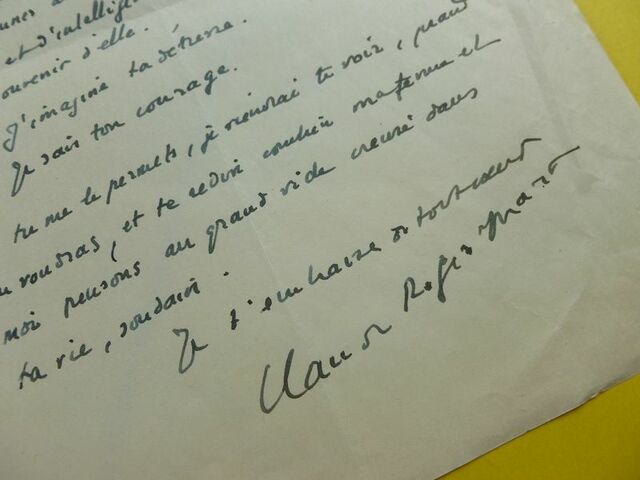 et d'intellig
ouvenir d'elle.
J'imagine ta détresse.
Je sais ton courage.
tu me le permets, je viendrai te voir, quand
u voudras, et te redirai combien maternne et
moi pensons au grand vide creusé dans
ta vie, soudain.
Je t'embrasse de tout coeur
Claude Roger-Marx